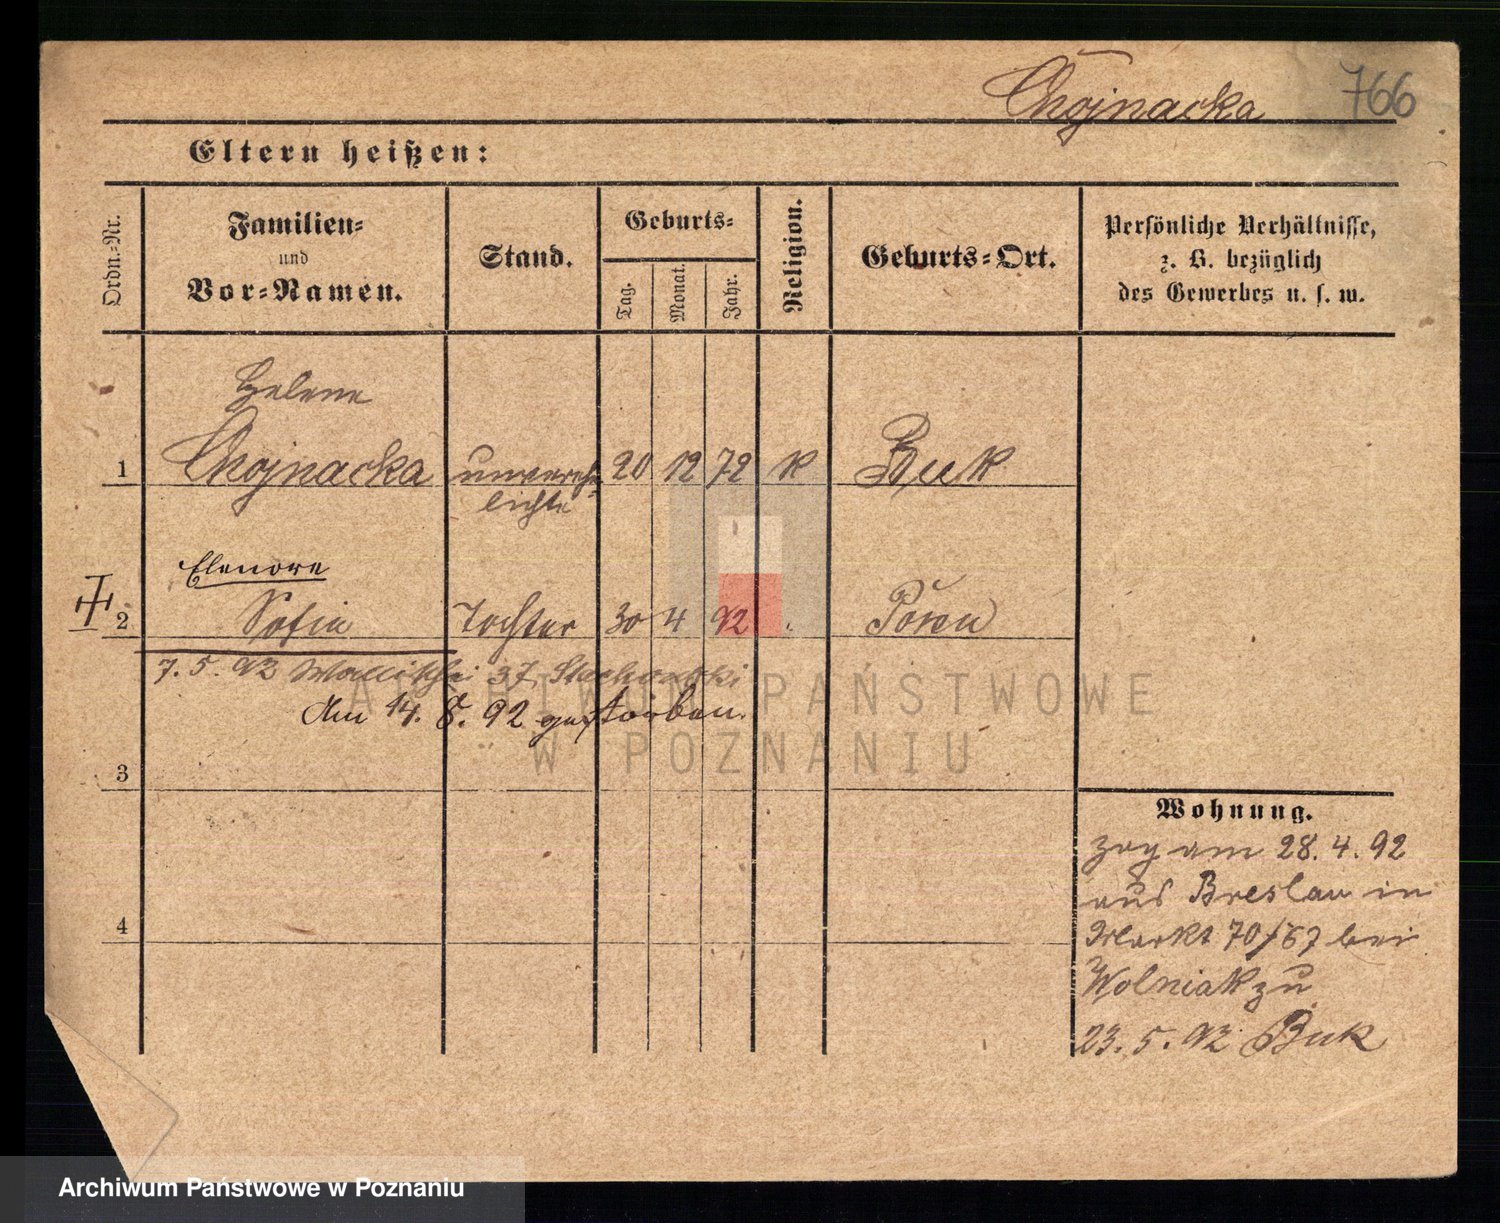 Chojnacka 766
Eltern heißen:
Ordn.-Nr.
Familien-
und
Vor-Namen.
Stand.
Geburts-
Tag. Monat. Jahr.
Religion.
Geburts-Ort.
Persönliche Verhältnisse,
z. B. bezüglich
des Gewerbes u. s. w.
Helene
1 Chojnacka unvereh- 20 12 72 K Buk
lichte
Elenore
2 Sofia Tochter 30 4 92 Posen
7. 5. 92 37,
Am 14. 8. 92 gestorben.
3
4
Wohnung.
zog am 28. 4. 92
aus Breslau in
Markt 70/67 bei
Wolniak zu
23. 5. 92 Buk
ARCHIWUM PAŃSTWOWE
W POZNANIU
Archiwum Państwowe w Poznaniu